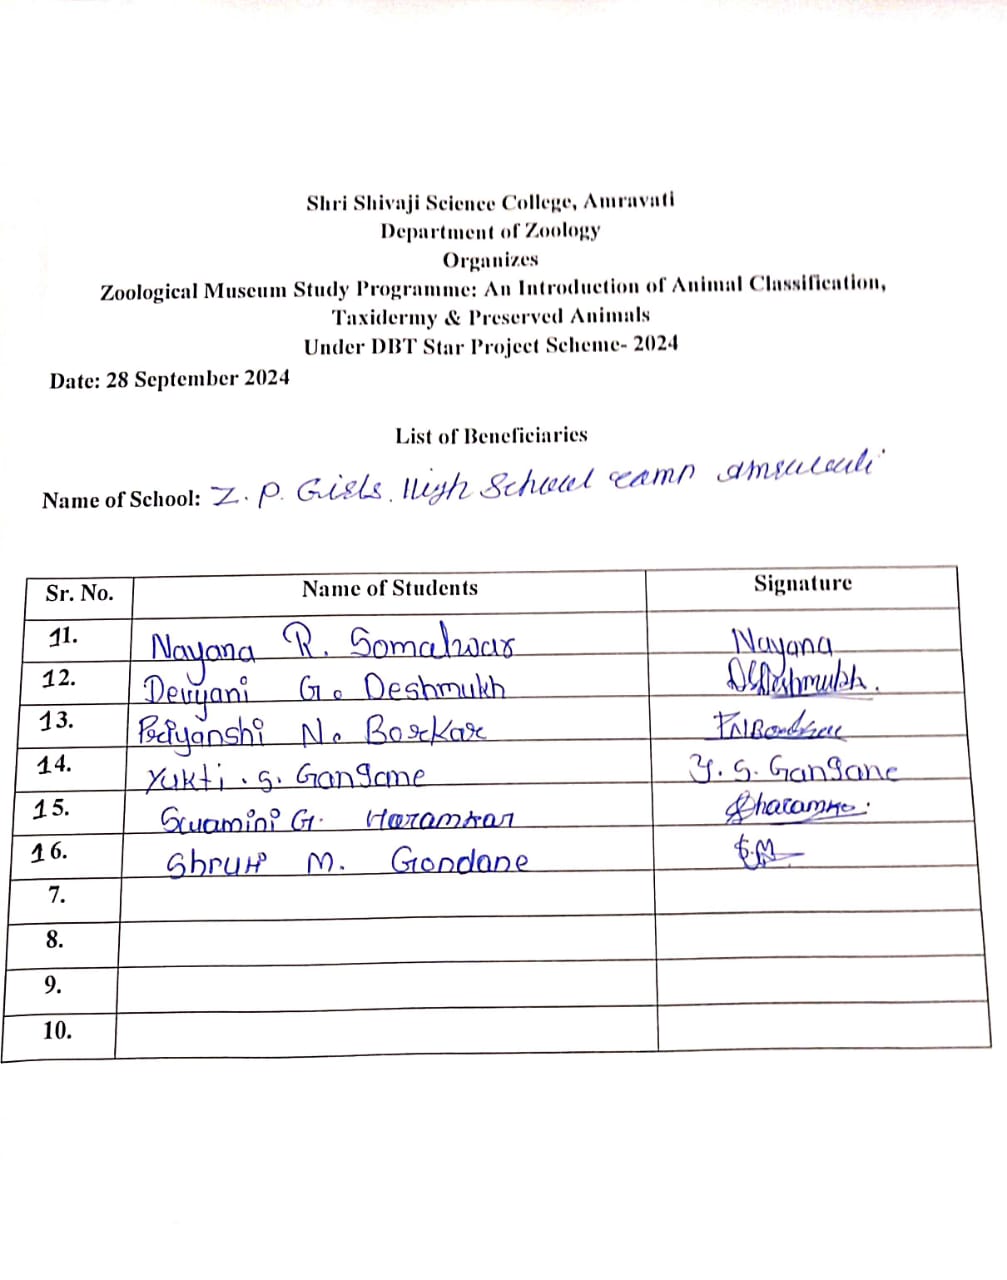 Shri Shivaji Science College, Amravati
Department of Zoology
Organizes
Zoological Museum Study Programme: An Introduction of Animal Classification,
Taxidermy & Preserved Animals
Under DBT Star Project Scheme- 2024
Date: 28 September 2024
List of Beneficiaries
Name of School: Z. P. Girls. High School camp amravati
Sr. No. Name of Students Signature
11. Nayana R. Somalwar Nayana
12. Devyani G. Deshmukh DGDeshmukh.
13. Priyanshi N. Borkar
14. Yukti . S. Gangane Y. S. Gangane
15. Swamini G. Haramkar
16. Shruti M. Gondane S.M
7.
8.
9.
10.